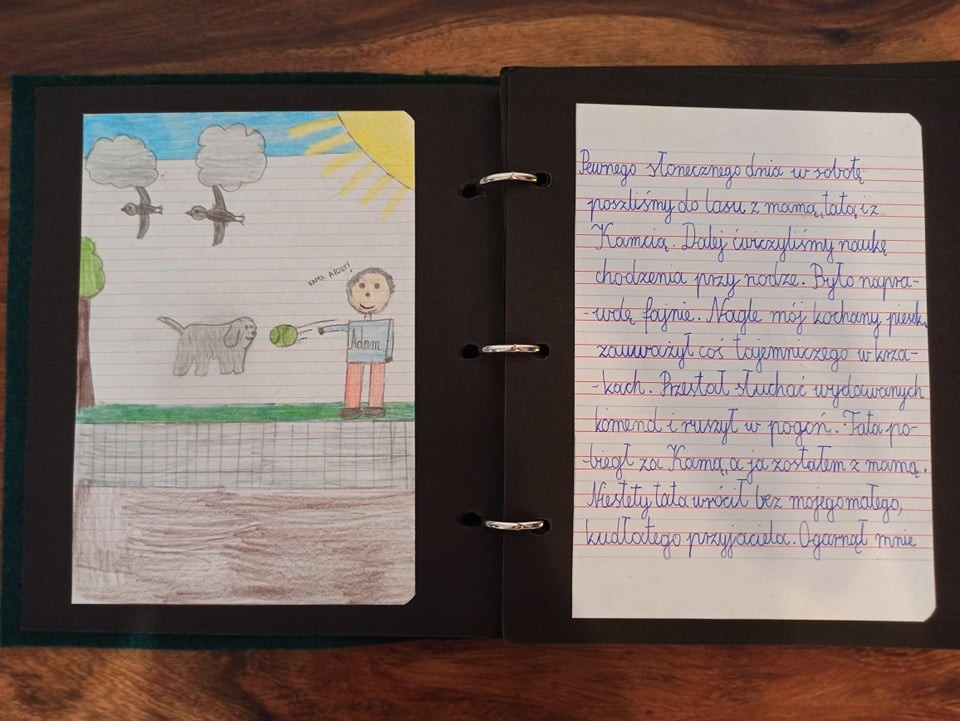 KAMA APORT!
Adam
Pewnego słonecznego dnia w sobotę
poszliśmy do lasu z mamą, tatą i z
Kamcią. Dalej ćwiczyliśmy naukę
chodzenia przy nodze. Było napra-
-wdę fajnie. Nagle mój kochany piesek
zauważył coś tajemniczego w krza-
-kach. Przestał słuchać wydawanych
komend i ruszył w pogoń. Tata po-
-biegł za Kamą, a ja zostałem z mamą.
Niestety tata wrócił bez mojego małego,
kudłatego przyjaciela. Ogarnął mnie